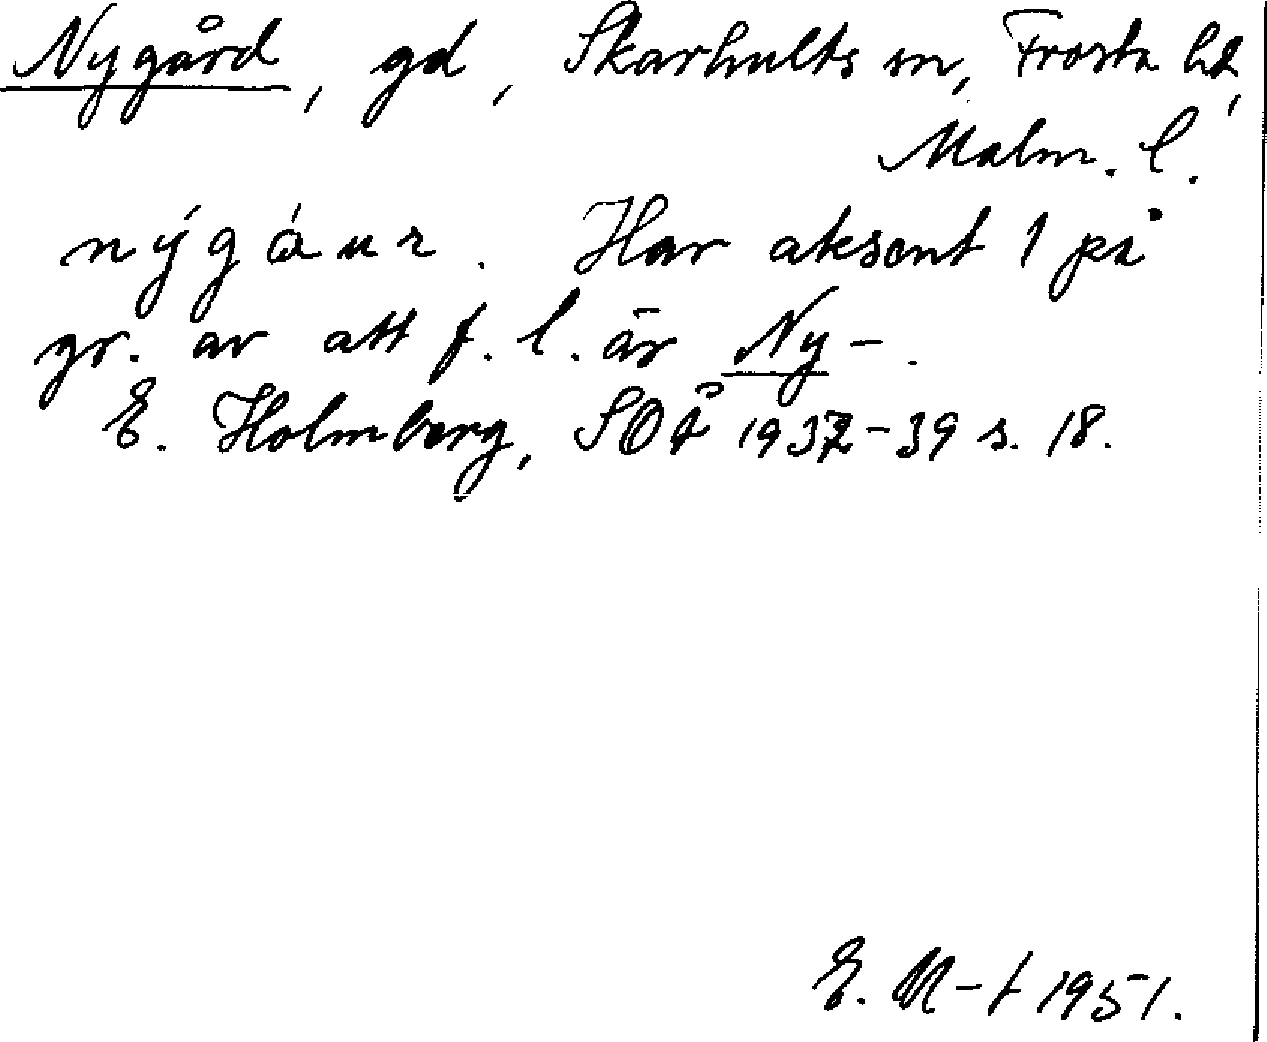 Nygård, gd, Skarhults sn, Frosta hd,
Malm. l.
nýgáur. Har aksent 1 på
gr. av att f. l. är Ny-.
E. Holmberg, SOÅ 1937-39 s. 18.
E. M-t 1951.